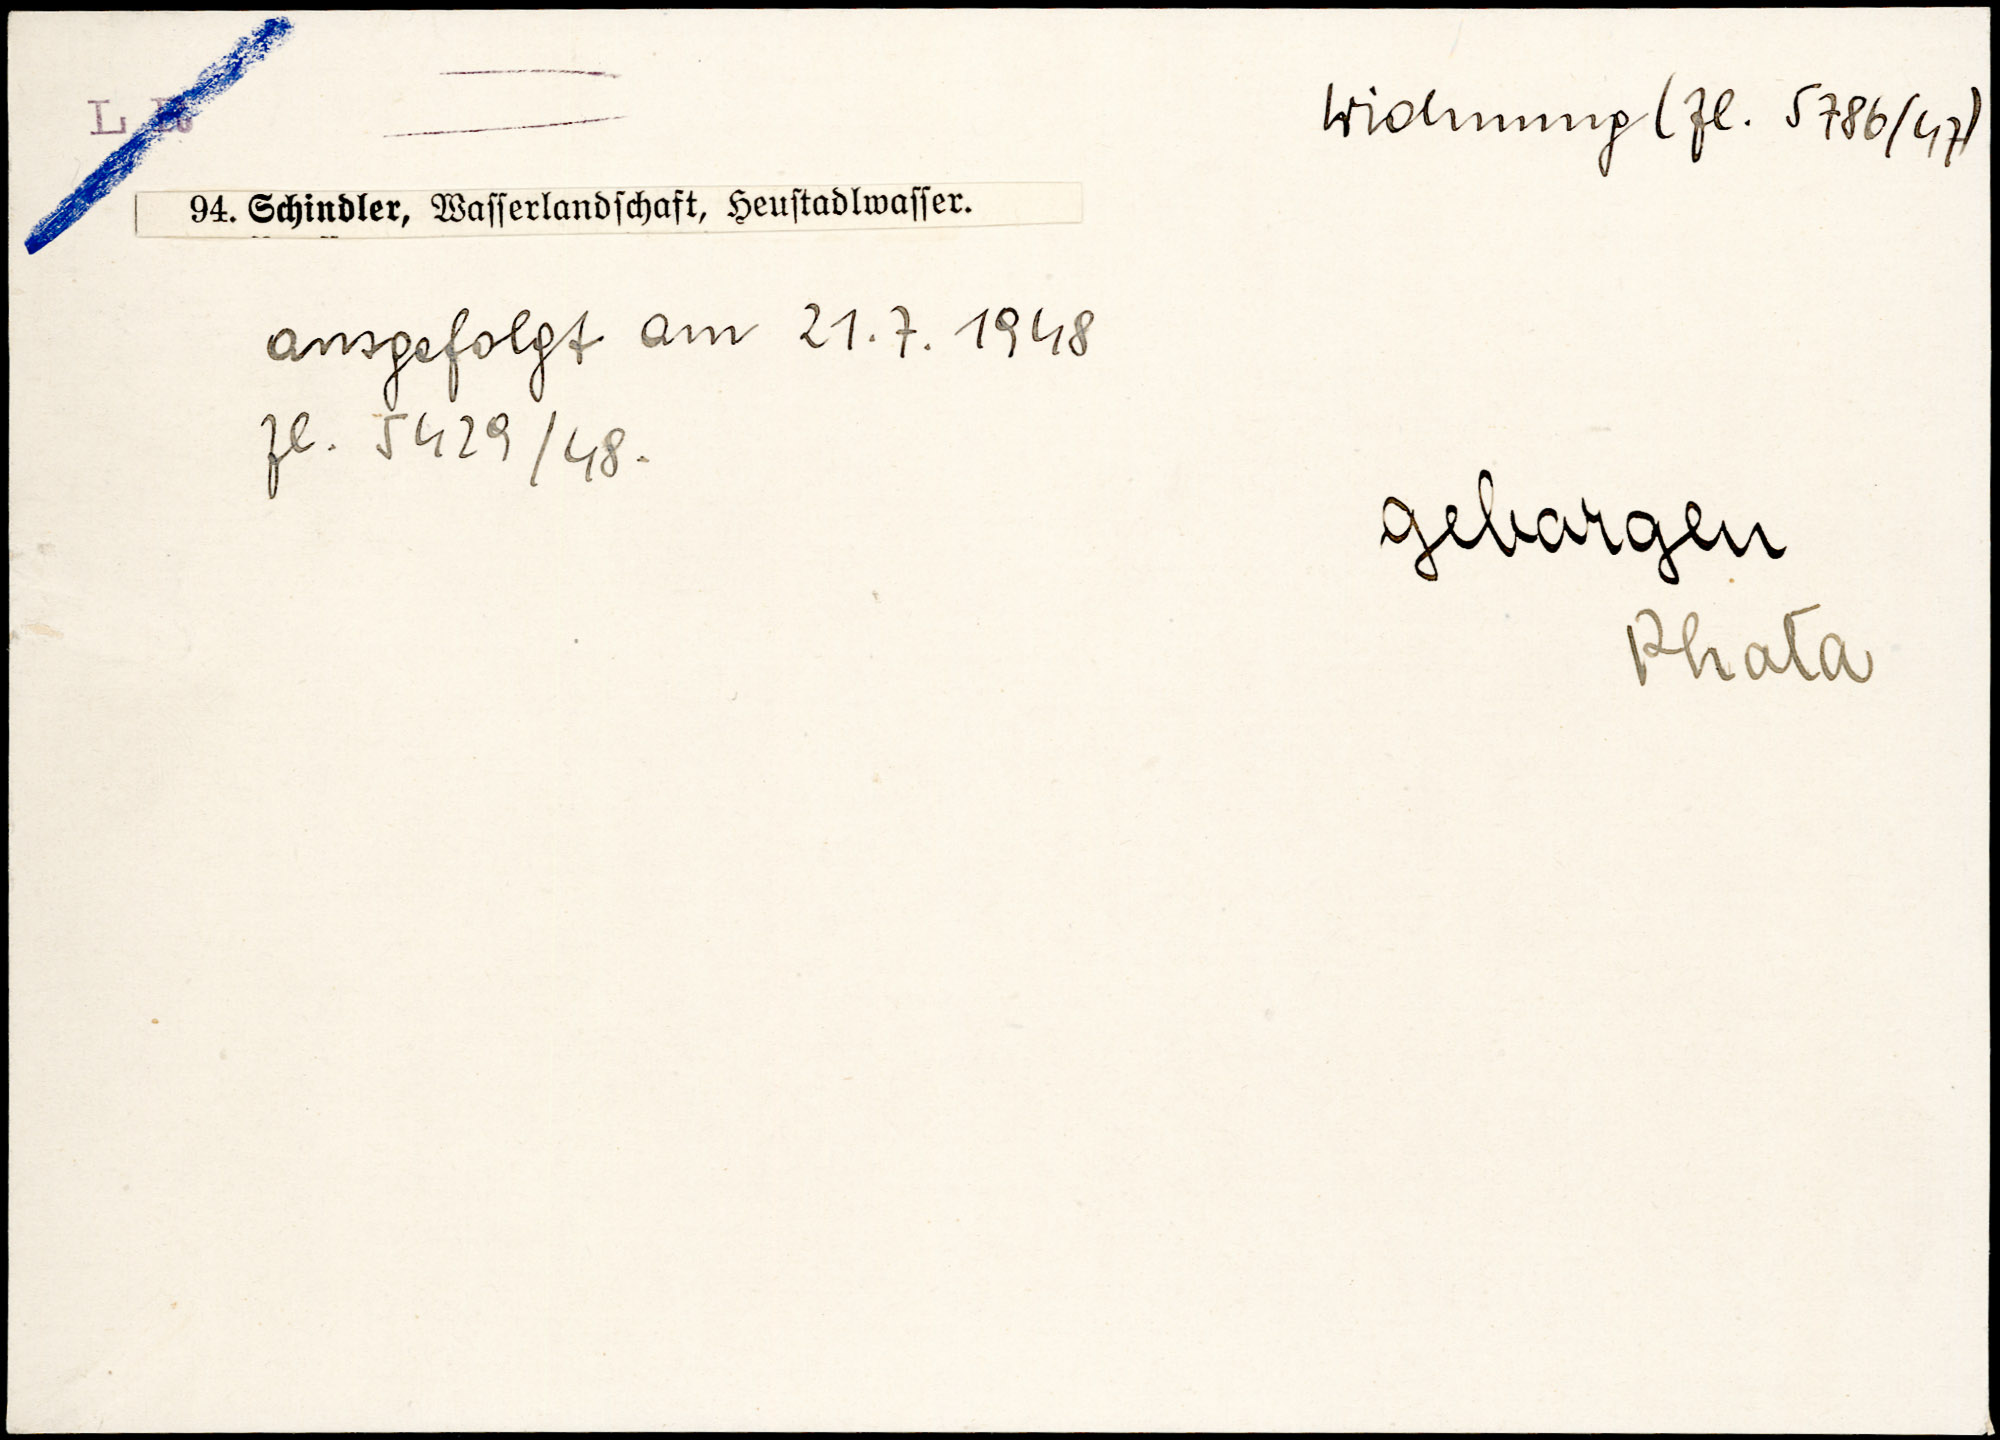 L R
Widmung (Zl. 5786/47)
94. Schindler, Wasserlandschaft, Heustadlwasser.
ausgefolgt am 21.7.1948
Zl. 5429/48.
geborgen
Photo